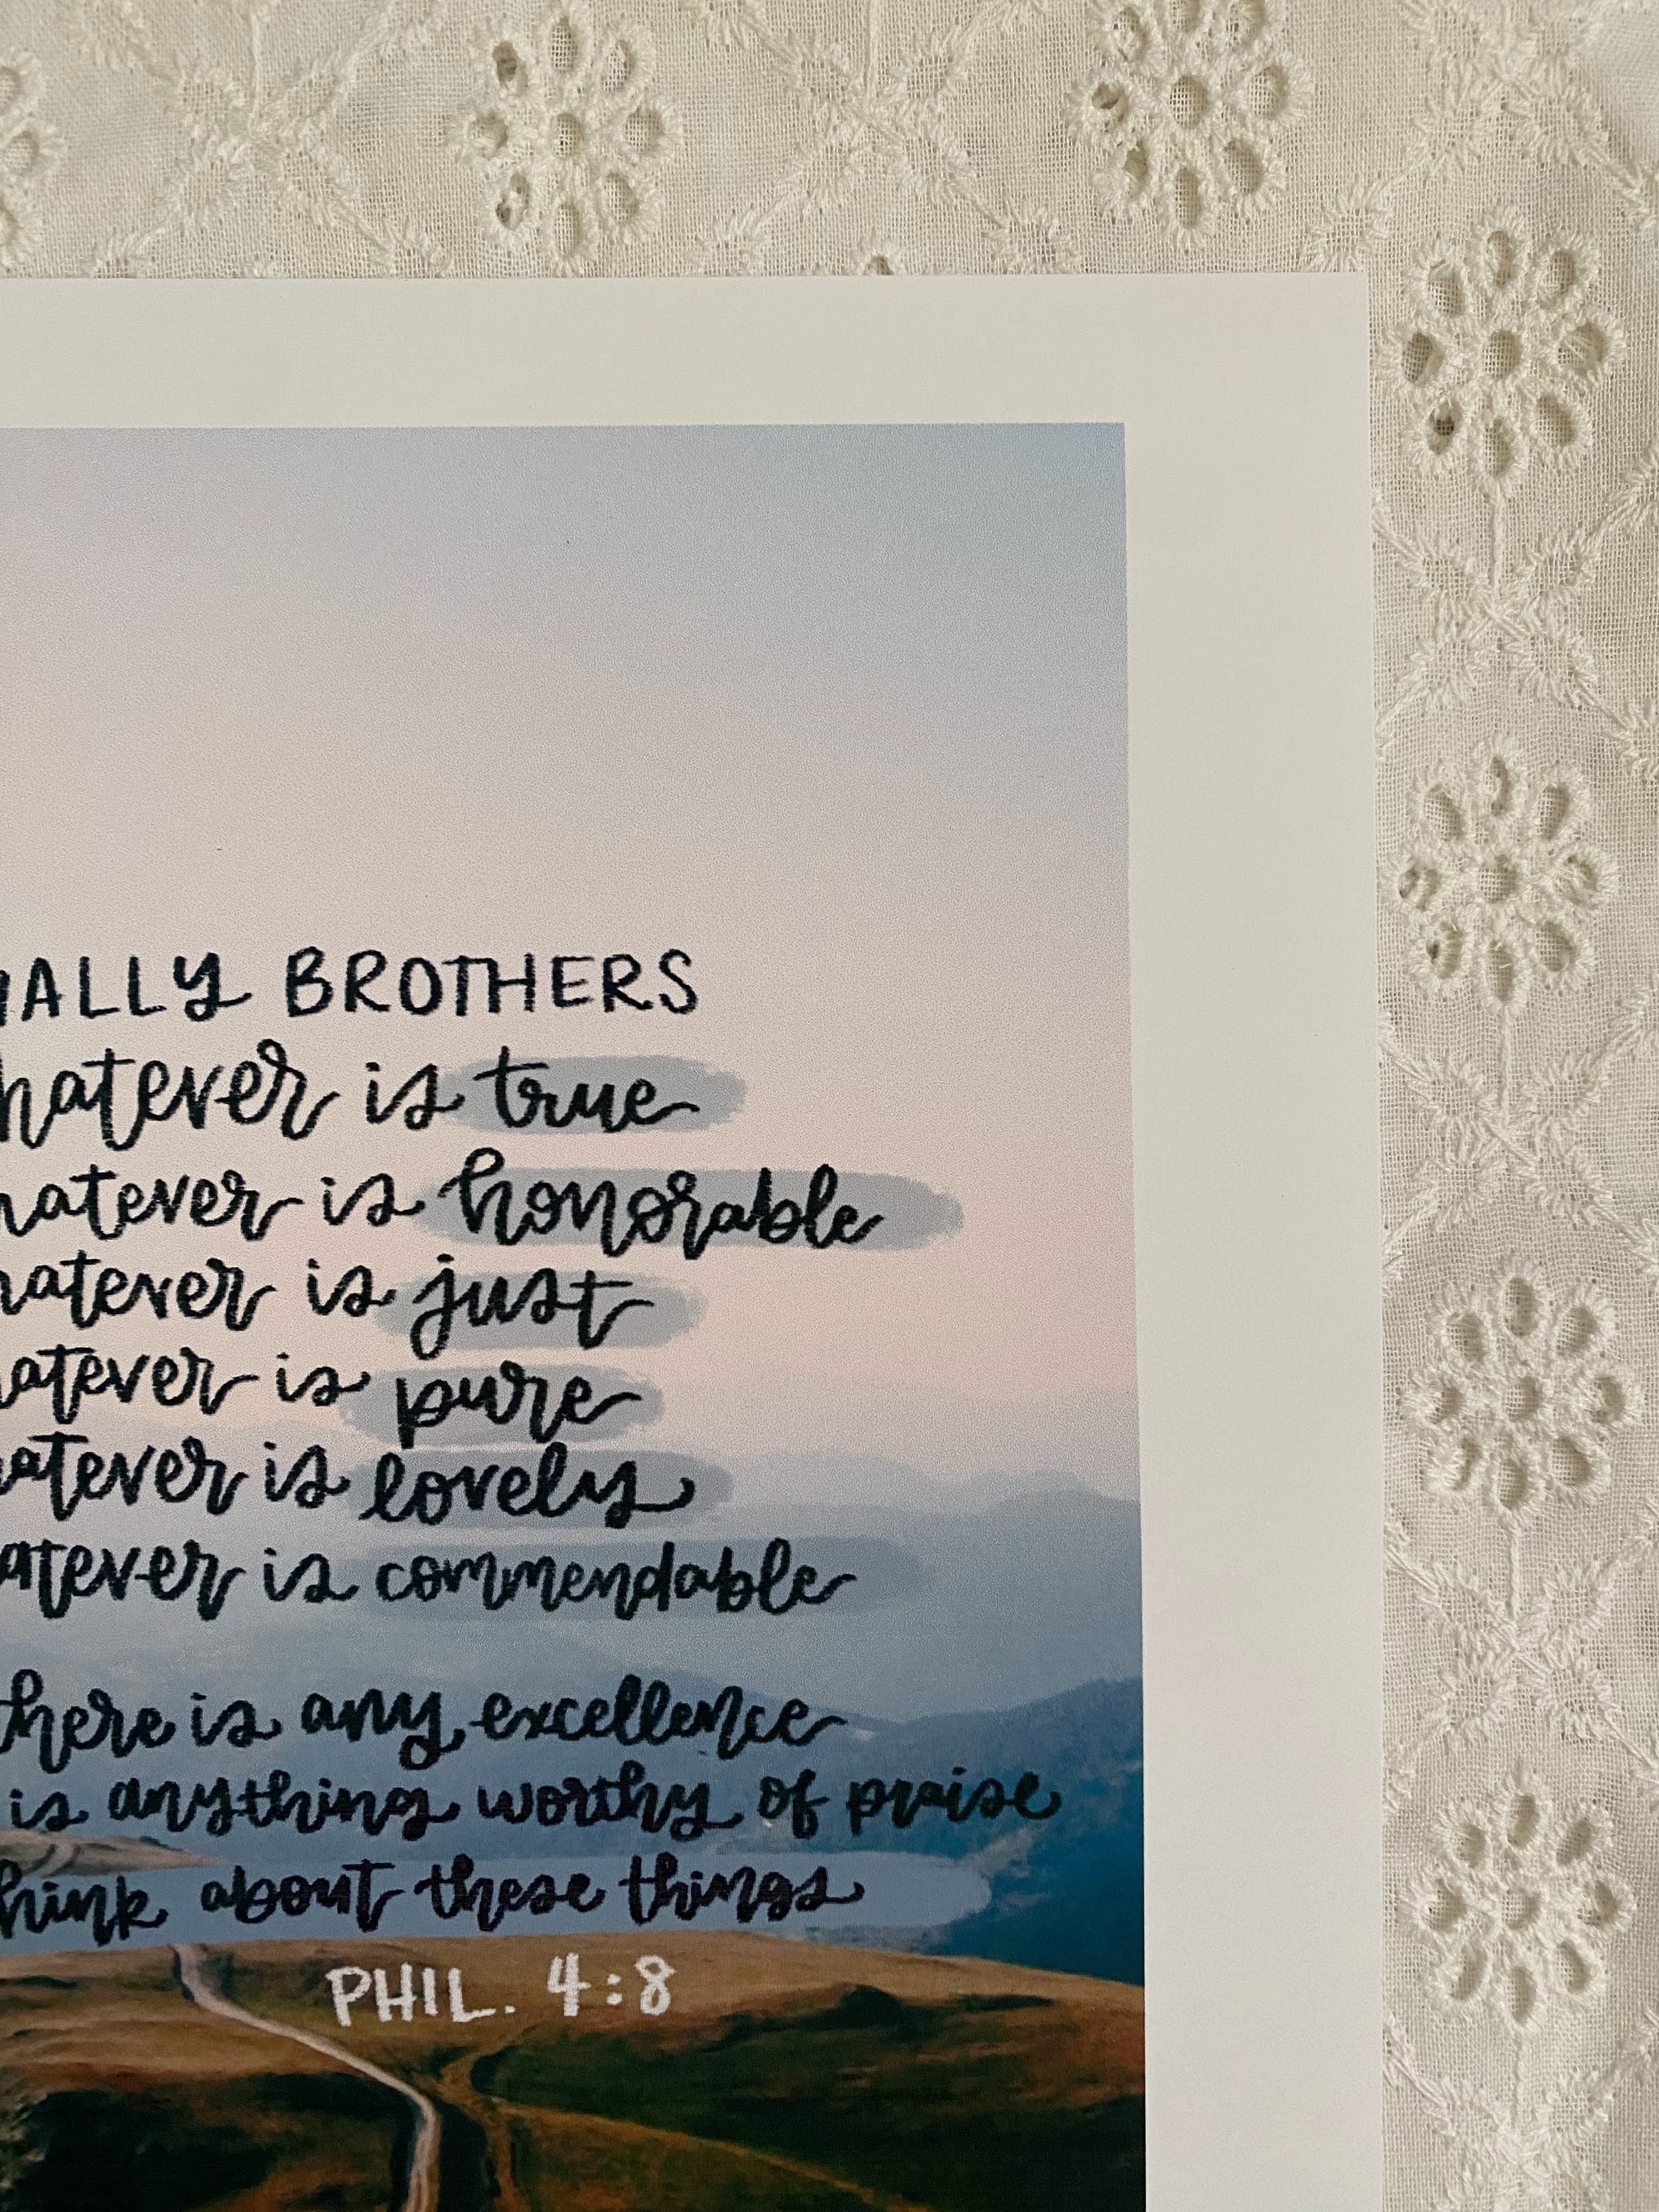 NALLY BROTHERS
hatever is true
hatever is honorable
hatever is just
hatever is pure
hatever is lovely
atever is commendable
there is any excellence
is anything worthy of praise
hink about these things
PHIL. 4:8